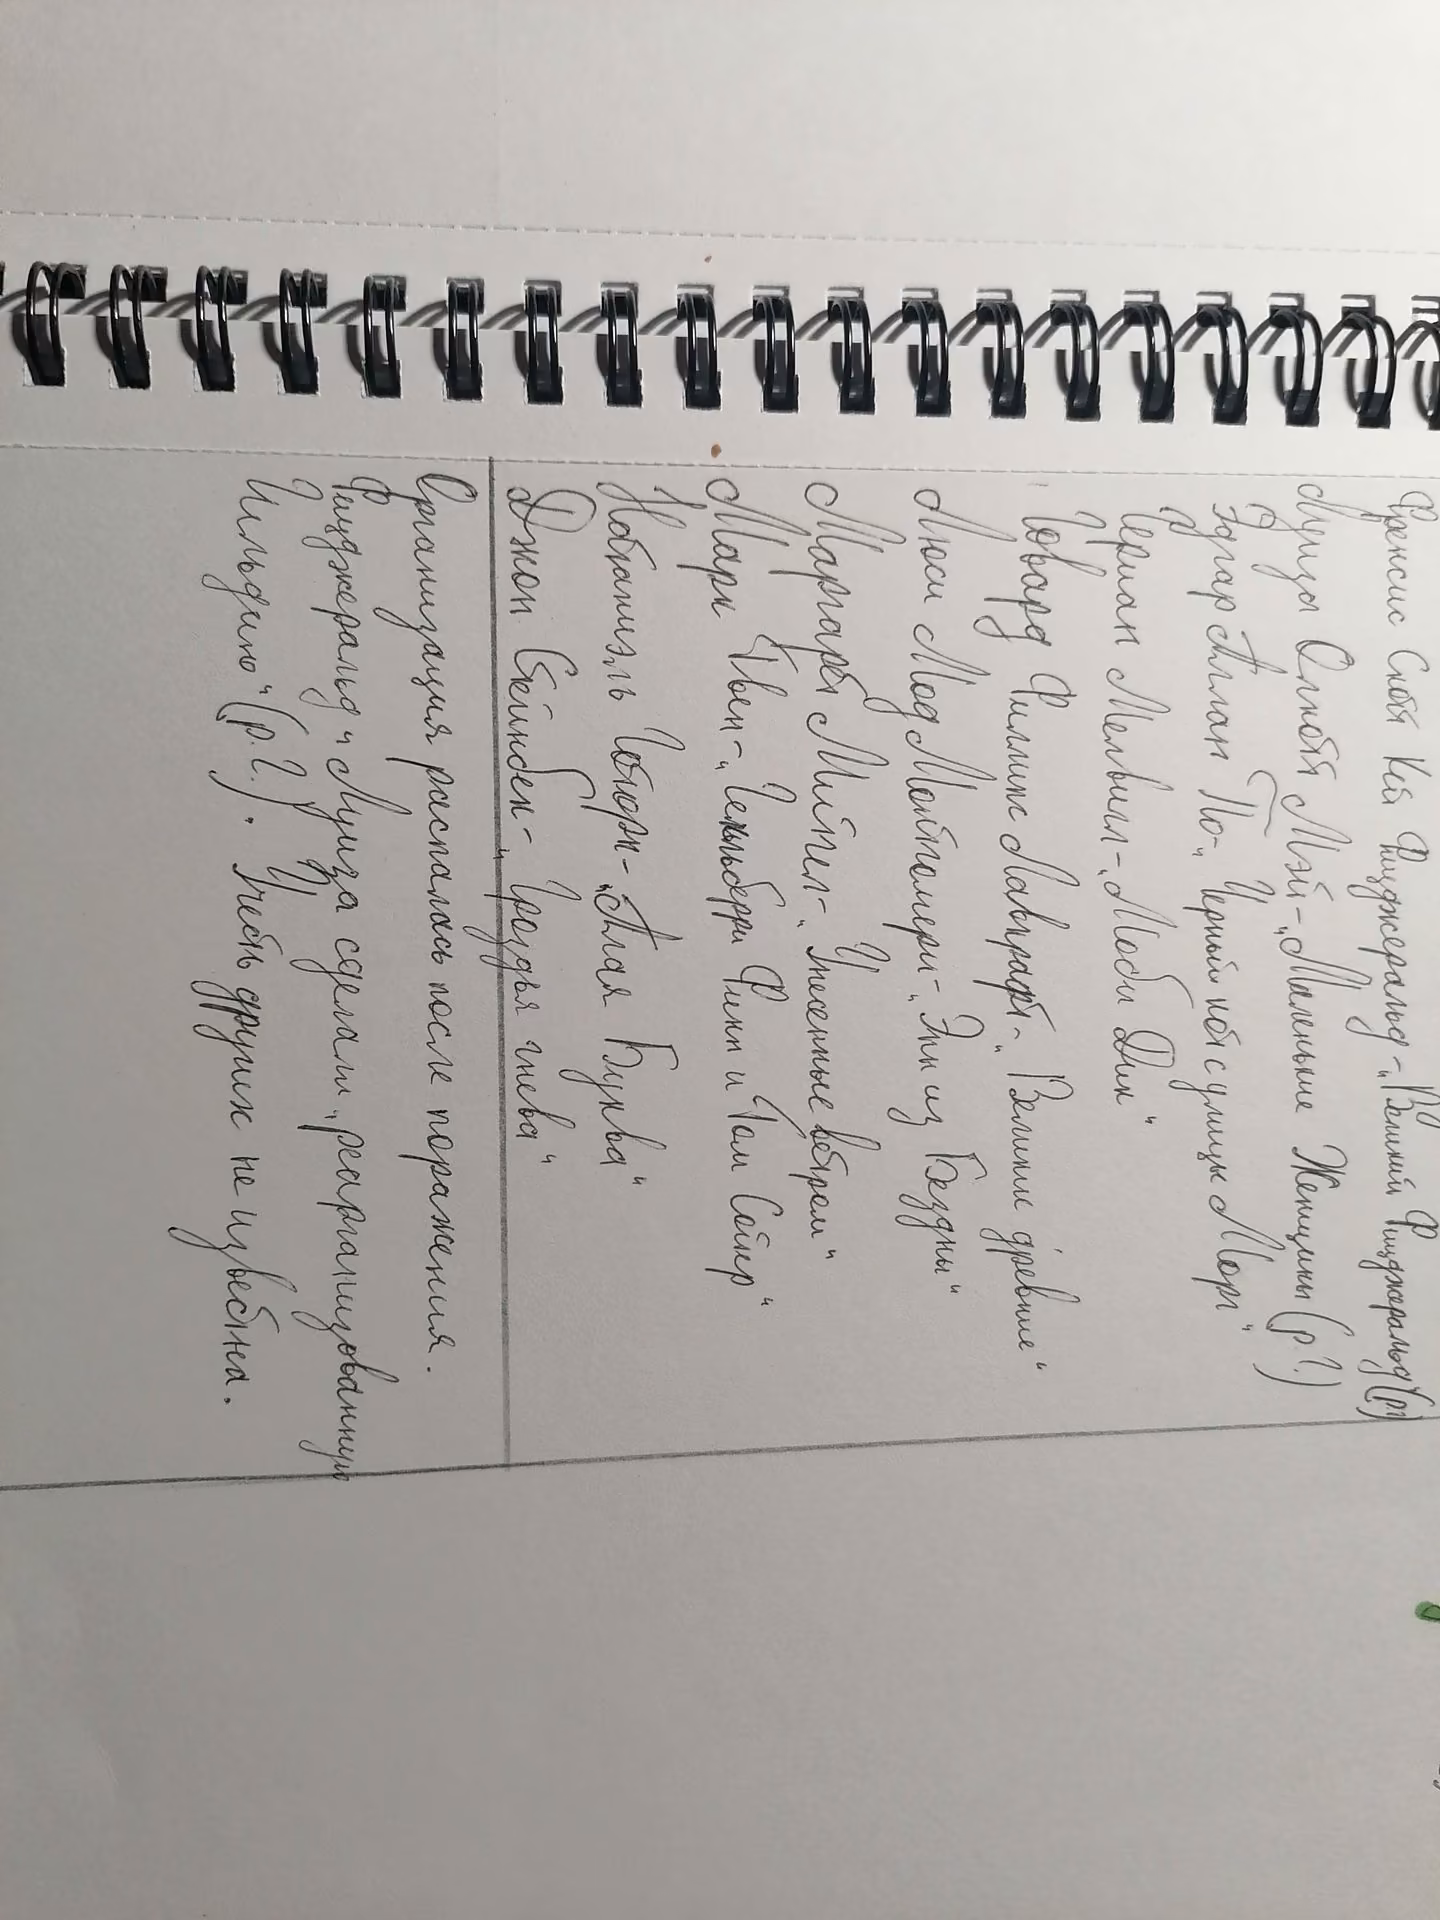 Френсис Скотт Кей Фицджеральд - „Великий Фицджеральд" (р?)
Луиза Олкотт Мэй - „Маленькие Женщины (р?)
Эдгар Аллан По - „Черный кот с улицы Морг"
Герман Мелвилл - „Моби Дик"
Говард Филлипс Лавкрафт - „Великие древние"
Люси Мод Монтгомери - „Энн из Бездны"
Маргарет Митчел - „Унесенные ветром"
Марк Твен - „Гекльберри Финн и Том Сойер"
Натаниэль Готорн - „Алая Буква"
Джон Стейнбек - „Гроздья гнева"
Организация распалась после поражения.
Фицджеральд и Луиза сделали „реорганизованную
Гильдию" (р.?). Участь других не известна.